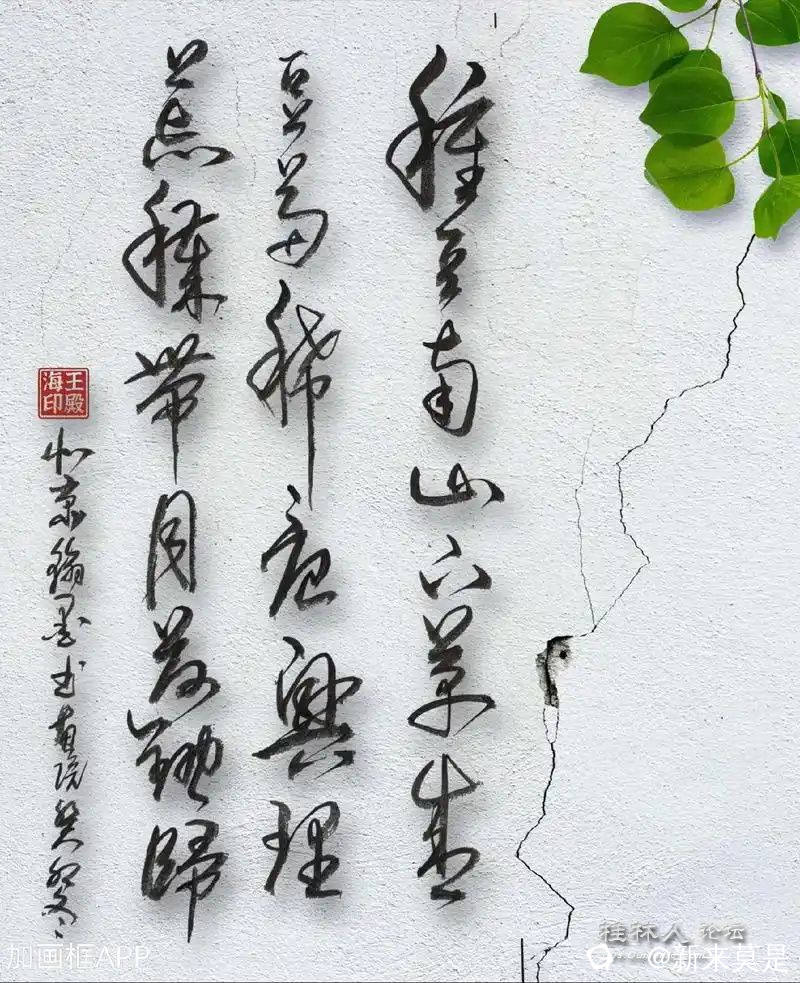 種豆南山下草盛
豆苗稀晨興理
荒穢帶月荷鋤歸
北京翰墨书画院癸卯冬
王殿海印
桂林人论坛
加画框APP
@新来莫是